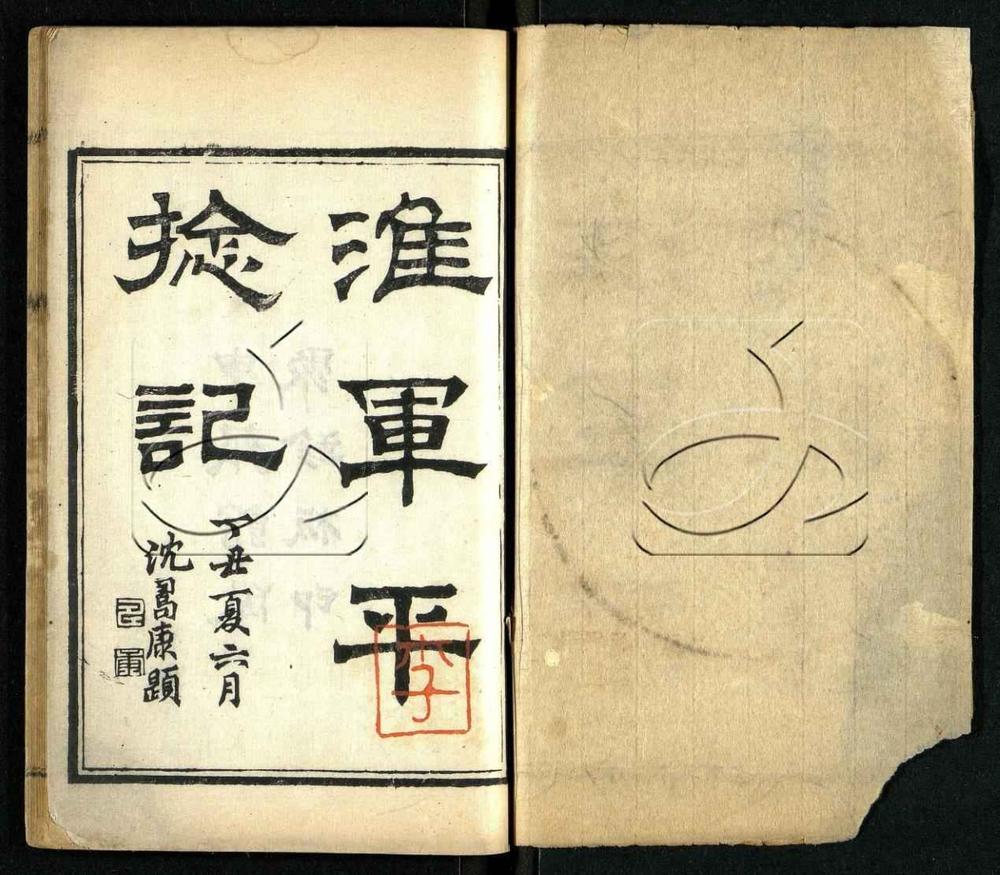 淮軍平
捻記
丁丑夏六月
沈景康題
李